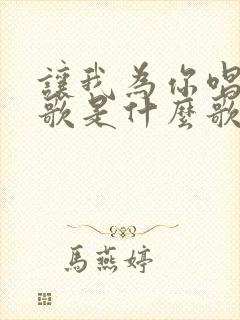 讓我為你唱
歌是什麼歌
馬燕婷